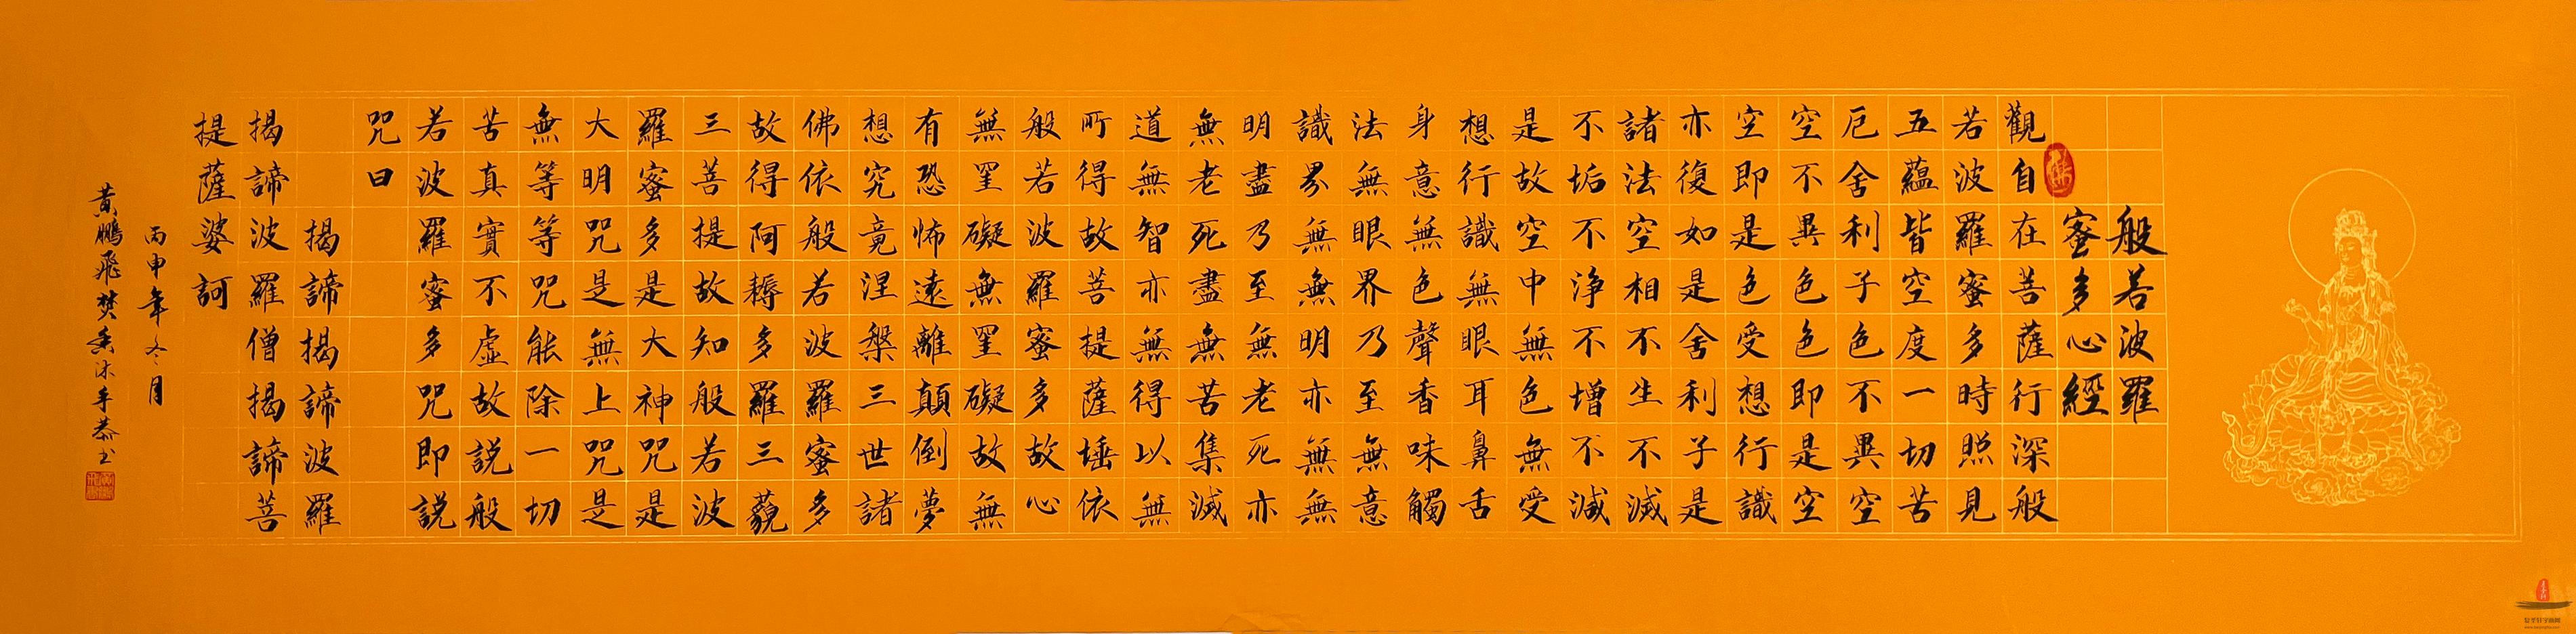 般若波羅
蜜多心經
佛
觀自在菩薩行深般
若波羅蜜多時照見
五蘊皆空度一切苦
厄舍利子色不異空
空不異色色即是空
空即是色受想行識
亦復如是舍利子是
諸法空相不生不滅
不垢不淨不增不減
是故空中無色無受
想行識無眼耳鼻舌
身意無色聲香味觸
法無眼界乃至無意
識界無無明亦無無
明盡乃至無老死亦
無老死盡無苦集滅
道無智亦無得以無
所得故菩提薩埵依
般若波羅蜜多故心
無罣礙無罣礙故無
有恐怖遠離顛倒夢
想究竟涅槃三世諸
佛依般若波羅蜜多
故得阿耨多羅三藐
三菩提故知般若波
羅蜜多是大神咒是
大明咒是無上咒是
無等等咒能除一切
苦真實不虛故說般
若波羅蜜多咒即說
咒曰
揭諦揭諦波羅
揭諦波羅僧揭諦菩
提薩婆訶
丙申年冬月
黃鵬飛焚香沐手恭书